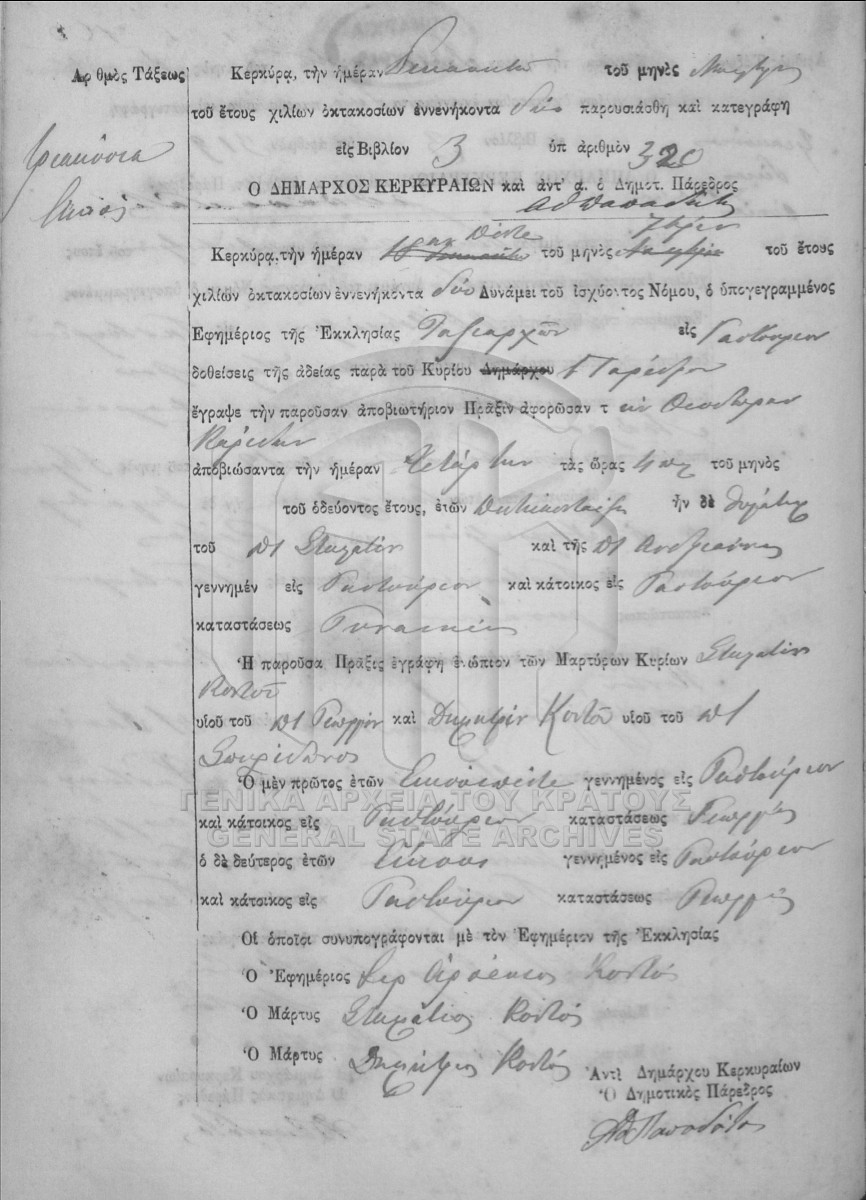 Αριθμὸς Τάξεως
τριακόσια
εἴκοσι
Κερκύρᾳ, τὴν ἡμέραν τοῦ μηνὸς
τοῦ ἔτους χιλίων ὀκτακοσίων ἐννενήκοντα δύο παρουσιάσθη καὶ κατεγράφη
εἰς Βιβλίον 3 ὑπ ἀριθμὸν 320
Ὁ ΔΗΜΑΡΧΟΣ ΚΕΡΚΥΡΑΙΩΝ καὶ ἀντ' α. ὁ Δημοτ. Πάρεδρος
Κερκύρᾳ, τὴν ἡμέραν πέντε τοῦ μηνὸς 7βρίου τοῦ ἔτους
χιλίων ὀκτακοσίων ἐννενήκοντα δύο Δυνάμει τοῦ ἰσχύοντος Νόμου, ὁ ὑπογεγραμμένος
Ἐφημέριος τῆς Ἐκκλησίας Ταξιαρχῶν εἰς Γαστούριον
δοθείσεις τῆς ἀδείας παρὰ τοῦ Κυρίου Δημάρχου Παρέδρου
ἔγραψε τὴν παροῦσαν ἀποβιωτήριον Πρᾶξιν ἀφορῶσαν τ ὴν Θεοδώραν
ἀποβιώσαντα τὴν ἡμέραν Τετάρτην τὰς ὥρας 4 πμ τοῦ μηνὸς
τοῦ ὁδεύοντος ἔτους, ἐτῶν ἦν δὲ θυγάτηρ
τοῦ π1 Σταματίου καὶ τῆς π1
γεννημέν εἰς Γαστούριον καὶ κάτοικος εἰς Γαστούριον
καταστάσεως
Ἡ παροῦσα Πρᾶξις ἐγράφη ἐνώπιον τῶν Μαρτύρων Κυρίων Σταματίου
Κοντοῦ
υἱοῦ τοῦ π1 Γεωργίου καὶ Δημητρίου Κοντοῦ υἱοῦ τοῦ π1
Σπυρίδωνος
Ὁ μὲν πρῶτος ἐτῶν Εικοσιπέντε γεννημένος εἰς Γαστούριον
καὶ κάτοικος εἰς Γαστούριον καταστάσεως Γεωργός
ὁ δὲ δεύτερος ἐτῶν Είκοσι γεννημένος εἰς Γαστούριον
καὶ κάτοικος εἰς Γαστούριον καταστάσεως Γεωργός
Οἱ ὁποῖοι συνυπογράφονται μὲ τὸν Ἐφημέριον τῆς Ἐκκλησίας
Ὁ Ἐφημέριος Ιερ Αρσένιος Κοντός
Ὁ Μάρτυς Σταμάτιος Κοντός
Ὁ Μάρτυς Δημήτριος Κοντός
Ἀντὶ Δημάρχου Κερκυραίων
Ὁ Δημοτικὸς Πάρεδρος
ΓΕΝΙΚΑ ΑΡΧΕΙΑ ΤΟΥ ΚΡΑΤΟΥΣ
GENERAL STATE ARCHIVES